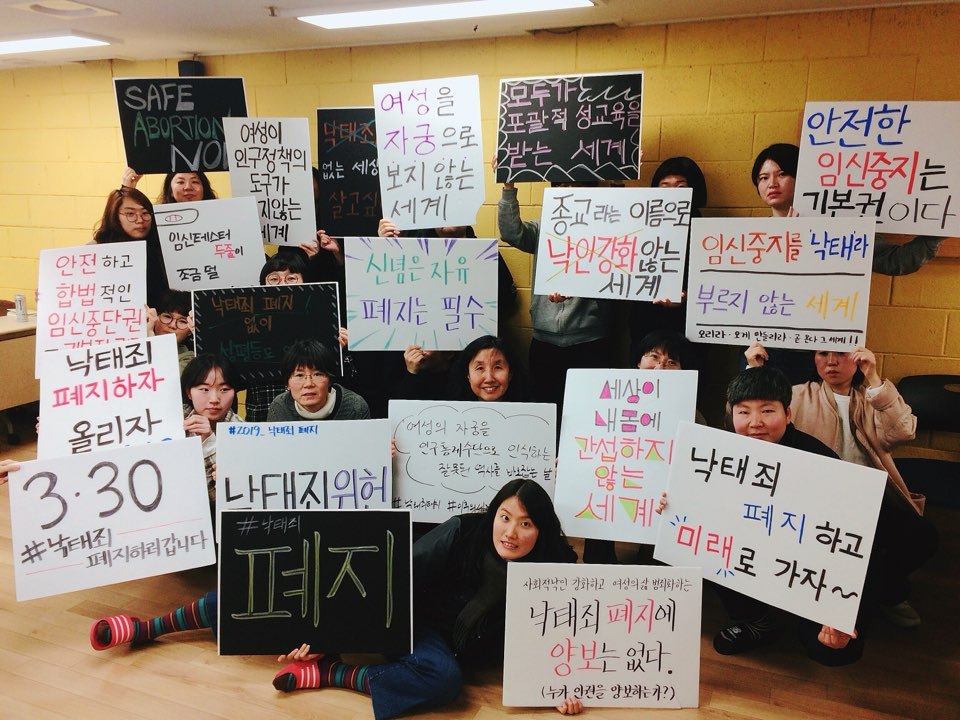 SAFE
ABORTION
NO!
여성이
인구정책의
도구가
지않는
세계
낙태죄
없는 세상
살고싶
여성을
자궁으로
보지 않는
세계
모두가
포괄적 성교육을
받는 세계
안전한
임신중지는
기본권이다
임신테스터
두줄이
조금 덜
종교라는 이름으로
낙인강화 않는
세계
임신중지를 '낙태'라
부르지 않는 세계
안전하고
합법적인
임신중단권
낙태죄 폐지
없이
신념은 자유
폐지는 필수
낙태죄
폐지하자
올리자
#2019_낙태죄 폐지
낙태죄위헌
여성의 자궁을
인구통제수단으로 인식하는
잘못된 역사를 바로잡는 날
세상이
내몸에
간섭하지
않는
세계
낙태죄
폐지하고
미래로 가자~
3·30
#낙태죄
폐지하러갑니다
#낙태죄
폐지
사회적낙인 강화하고 여성의삶 범죄화하는
낙태죄 폐지에
양보는 없다.
(누가 인권을 양보하는가?)